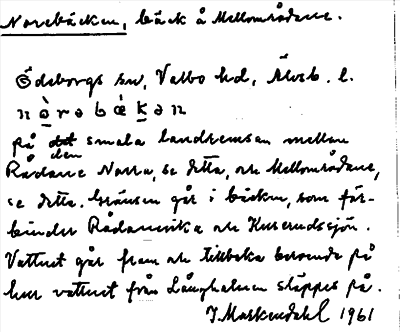 Norebäcken, bäck å Mellområdane.
Ödeborgs sn, Valbo hd, Älvsb. l.
n ò̱ r ə b ὰ ḵ ə n
på det smala landremsan mellan
den
Rådane Norra, se detta, och Mellområdane,
se detta. Gränsen går i bäcken, som för-
binder Rådanevika och Kuserudssjön.
Vattnet går fram och tillbaka beroende på
hur vattnet från Långhalmen släppes på.
J. Markendahl 1961